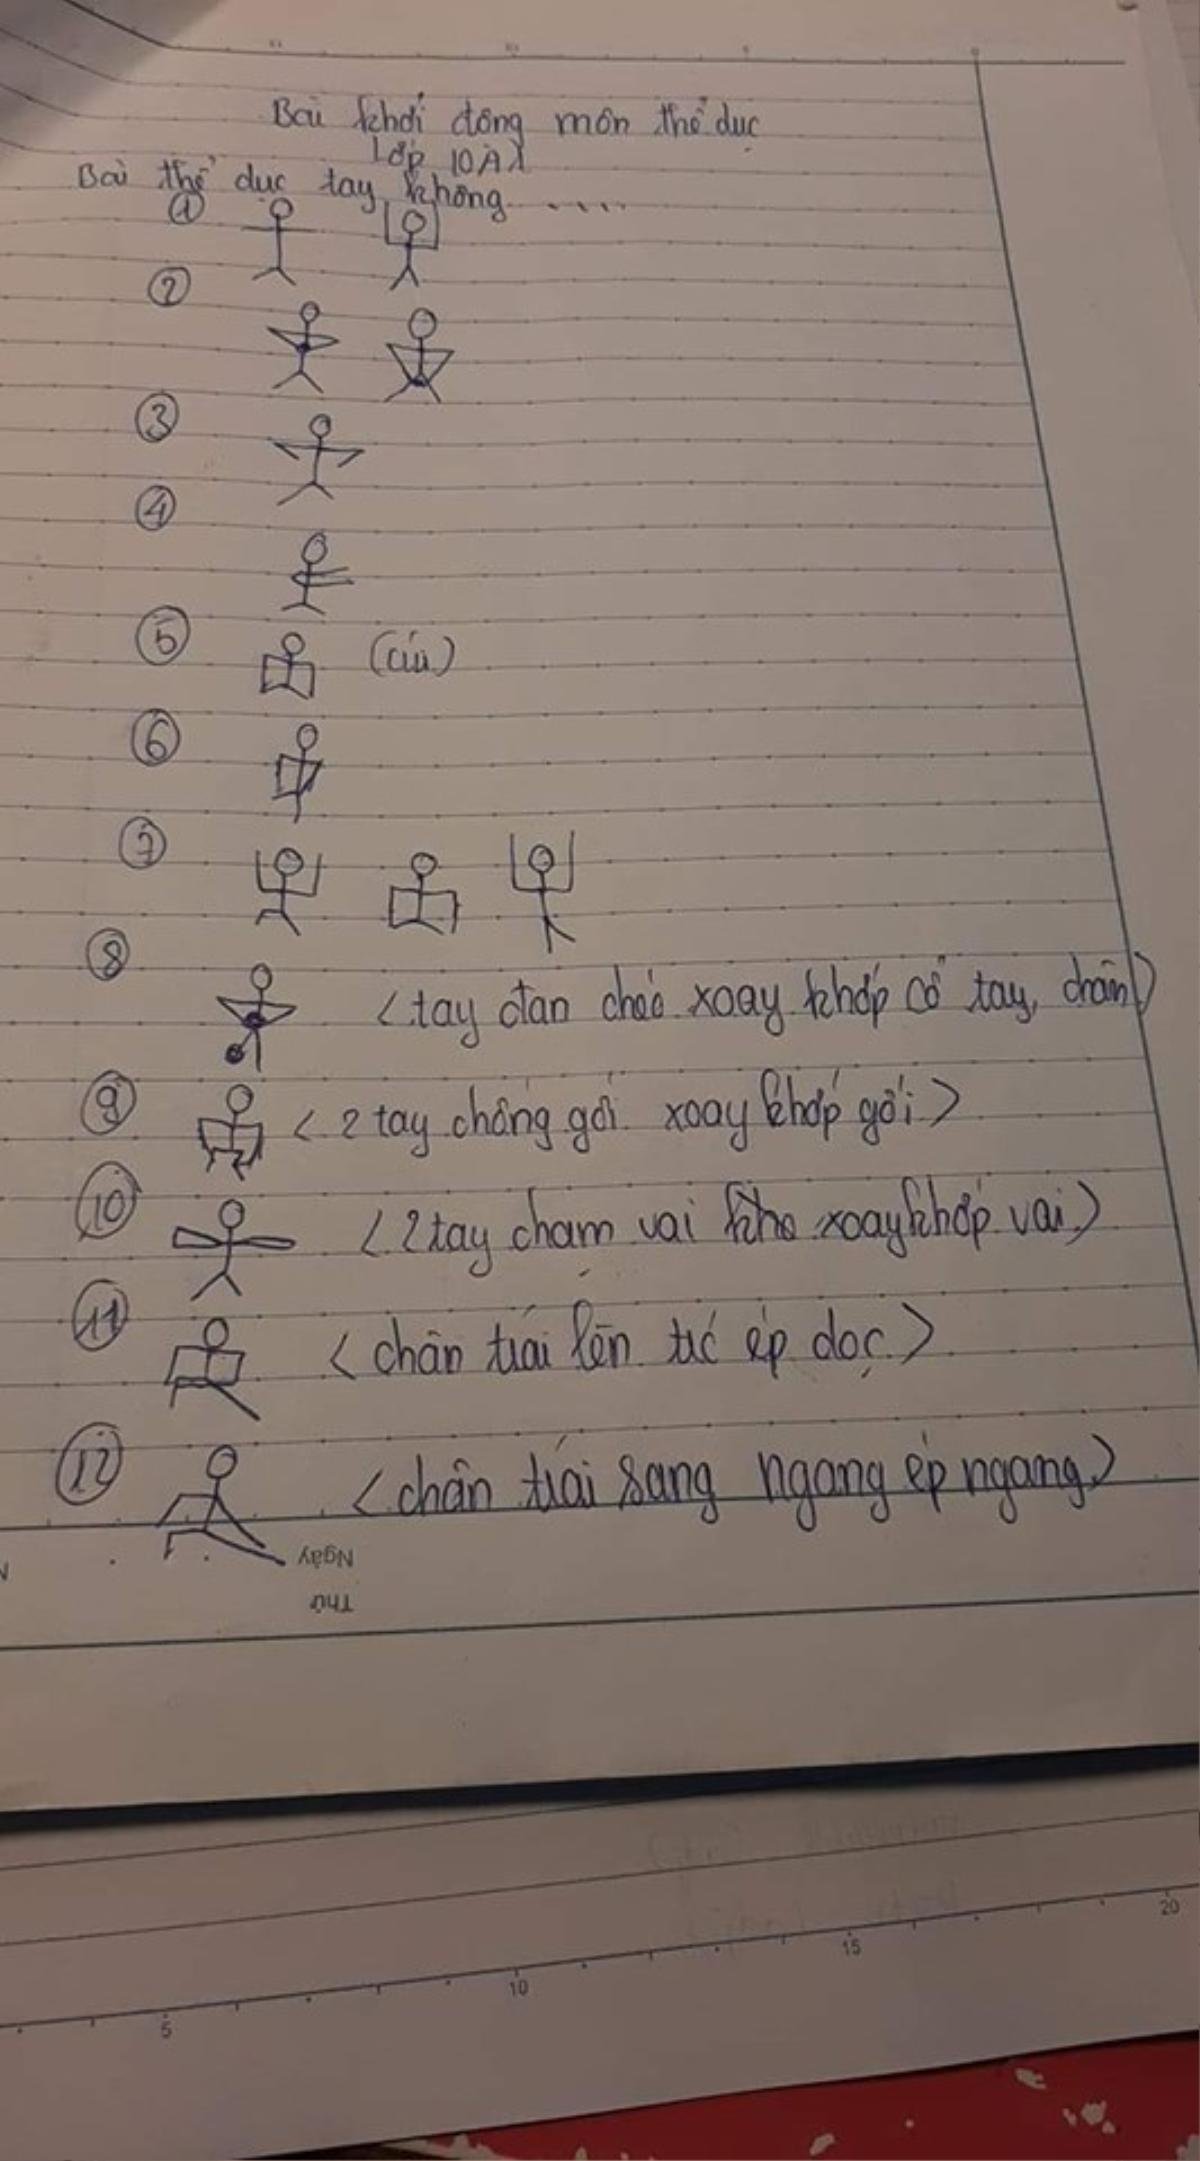 Bài khởi động môn thể dục
Lớp 10A
Bài thể dục tay không ....
1
2
3
4
5 (cúi)
6
7
8 <tay đan chéo xoay khớp cổ tay, chân>
9 <2 tay chống gối xoay khớp gối>
10 <2 tay chạm vai xoay khớp vai>
11 <chân trái lên trước ép dọc>
12 <chân trái sang ngang ép ngang>
Ngày
Thứ
5 10 15 20